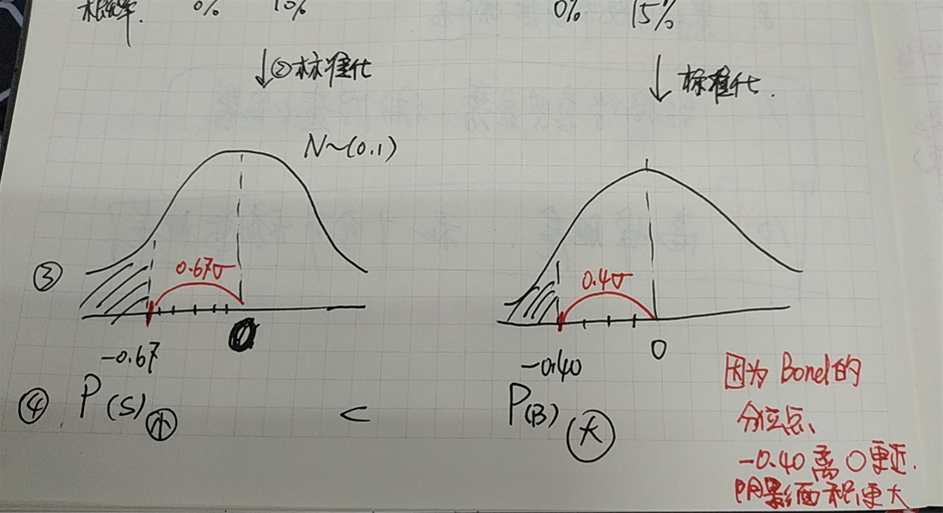 概率. 0% 10% 0% 15%
↓②标准化 ↓标准化.
N~(0.1)
③ 0.67σ 0.4σ
-0.67 0 -0.40 0
④ P(S)小 < P(B)大
因为 Bond的
分位点、
-0.40离0更近.
阴影面积更大